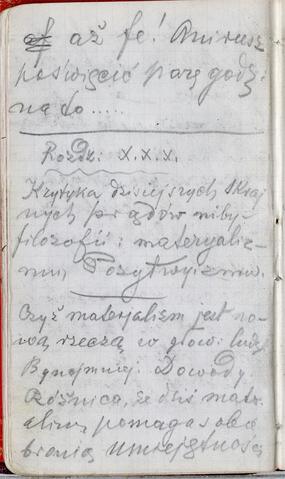 aż fe! Musisz
poświęcić parę godz:
na to.....
Rozdz: X.X.X.
Krytyka dzisiejszych skraj
nych prądów niby-
filozofii: materyaliz-
mu, Pozytwyizmu.
Czyż materjalizm jest no-
wą rzeczą w głowi: ludz
Bynajmniej. Dowody
Różnica, że dziś mate-
alizm, pomaga sobie
bronią Umiejętności